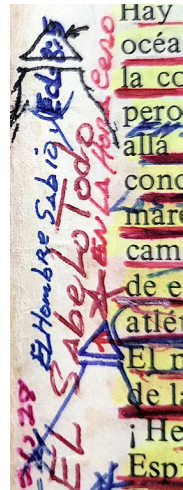 El Hombre Sabio
EL SABELO TODO
EN LA HORA CERO
Hay
océa
la co
pero
alla
cond
mare
cam
de e
atlét
El m
de la
¡He
Espi